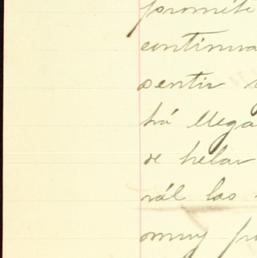 promete
continua
sentir
há llega
se helar
rál las
muy fr